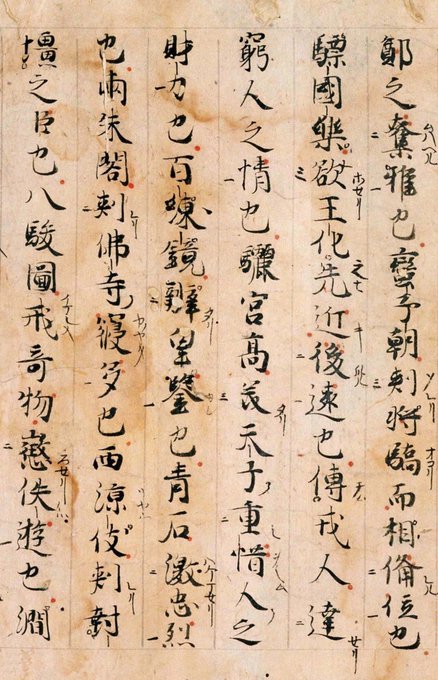 鄭之奪雅也蠻子朝刾將驕而相俻位也
驃國樂欲王化先近後遠也傳戎人達
窮人之情也驪宮高美天子重惜人之
財力也百練鏡辨皇鑒也青石激忠烈
也兩朱閣刾佛寺寖多也西涼伎刾封
壃之臣也八駿圖戒奇物懲佚遊也澗